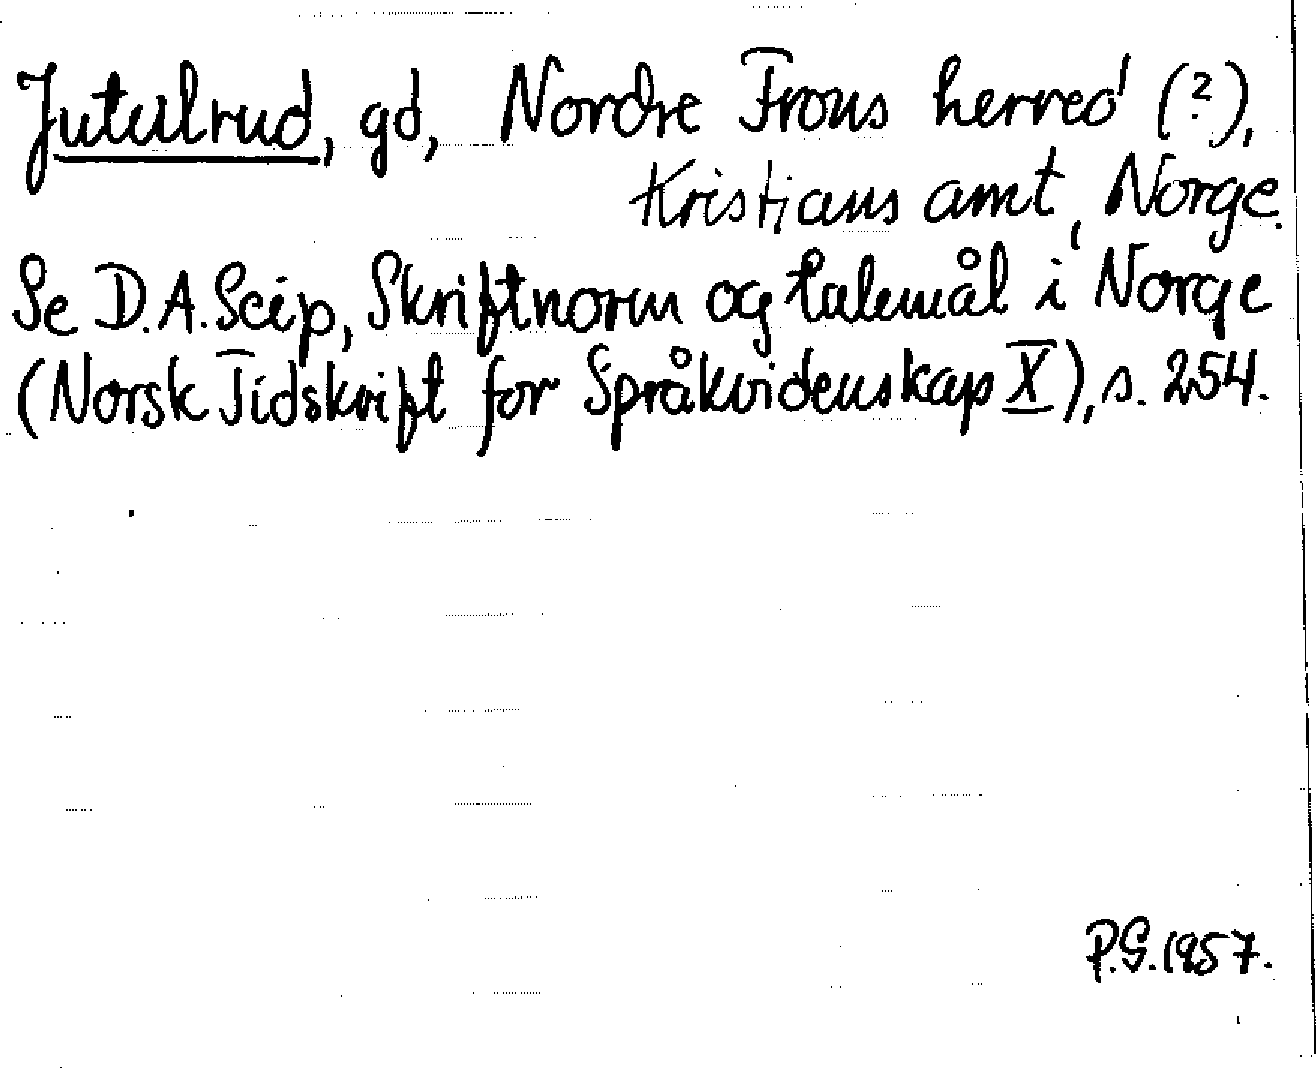 Jutulrud, gd, Nordre Frons herred (?),
Kristians amt, Norge.
Se D.A. Seip, Skriftnorm og talemål i Norge
(Norsk Tidskrift for Språkvidenskap X), s. 254.
P.G. 1957.